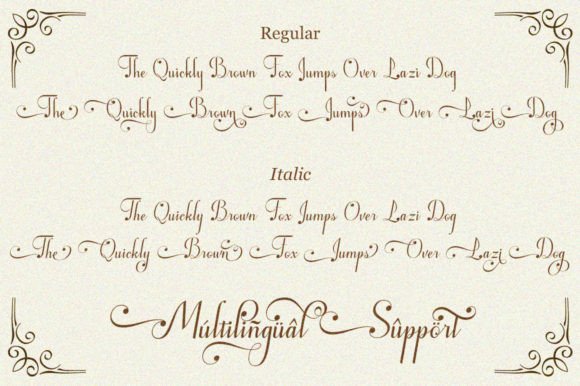 Regular
The Quickly Brown Fox Jumps Over Lazi Dog
The Quickly Brown Fox Jumps Over Lazi Dog
Italic
The Quickly Brown Fox Jumps Over Lazi Dog
The Quickly Brown Fox Jumps Over Lazi Dog
Múltilingüâl Sûppört